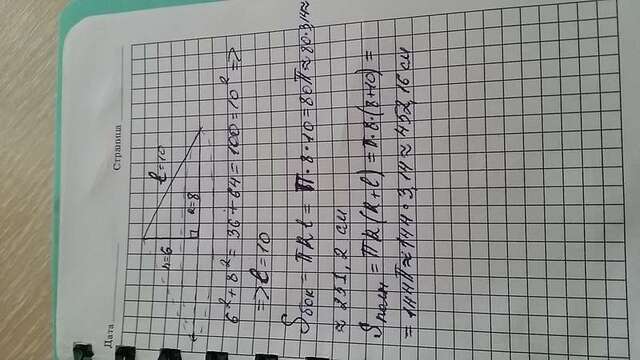 Дата Страница
h=6
l=10
R=8
6²+8²=36+64=100=10² =>
=> l=10
Sбок = πRl = π·8·10=80π≈80·3,14≈
≈251,2 см
Sполн = πR(R+l)=π·8·(8+10)=
=144π≈144·3,14≈452,16 см